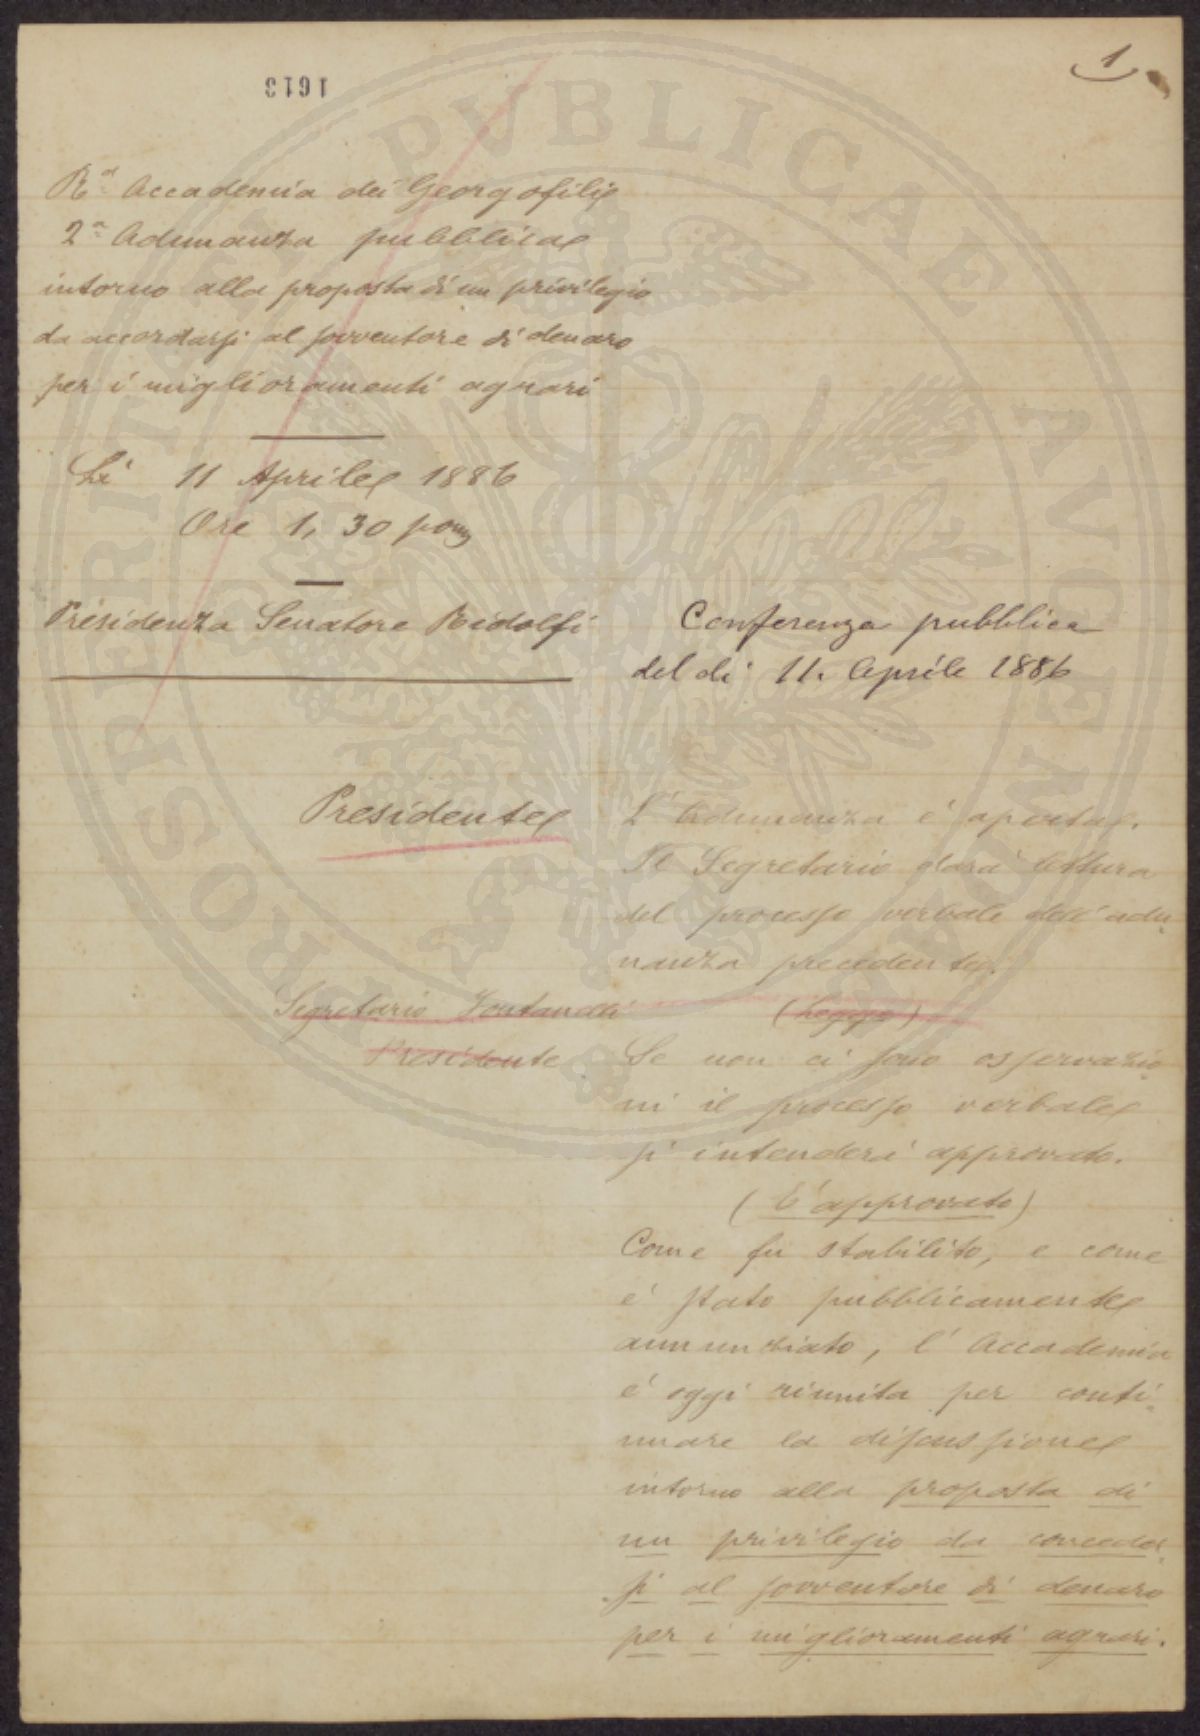 1
1613
Rª Accademia dei Georgofili
2ª Adunanza pubblica
intorno alla proposta di un privilegio
da accordarsi al sovventore di denaro
per i miglioramenti agrari
Li 11 Aprile 1886
Ore 1,30 pom
Presidenza Senatore Ridolfi
Conferenza pubblica
del di 11. Aprile 1886
Presidente
L'Adunanza é aperta.
Il Segretario dará lettura
del processo verbale dell'adu-
nanza precedente.
Segretario Fontanelli (Legge)
Presidente Se non ci sono osservazio-
ni il processo verbale
si intenderá approvato.
(É approvato)
Come fu stabilito, e come
é stato pubblicamente
annunziato, l'Accademia
é oggi riunita per conti-
nuare la discussione
intorno alla proposta di
un privilegio da conceder-
si al sovventore di denaro
per i miglioramenti agrari.
PROSPERITATI PVBLICAE AVGENDAE